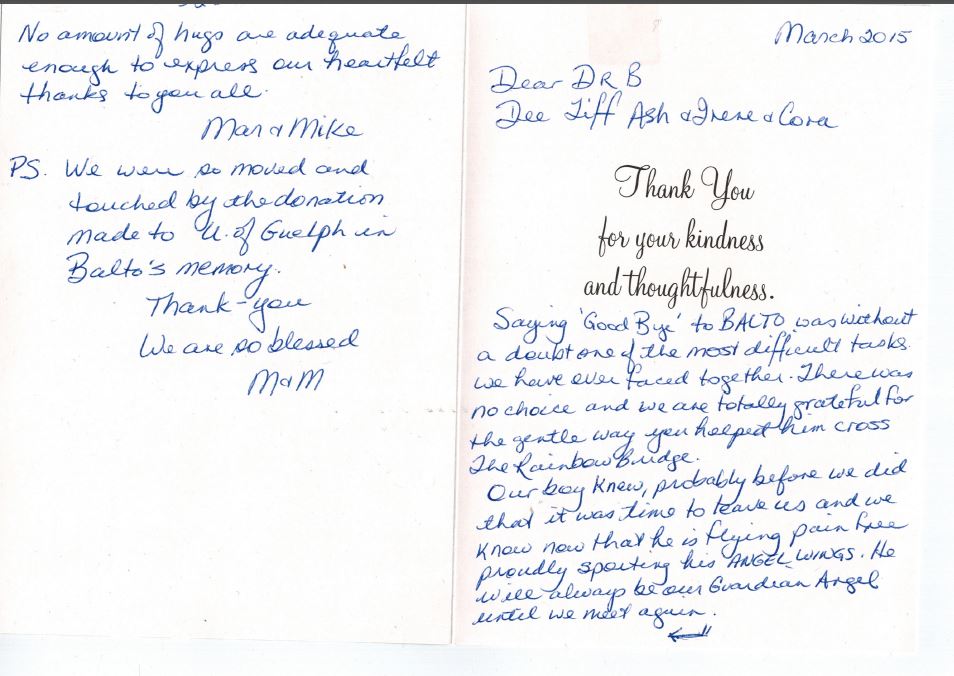 March 2015
Dear DR B
Dee Tiff Ash & Irene & Cora
Thank You
for your kindness
and thoughtfulness.
Saying 'Good Bye' to BALTO was without
a doubt one of the most difficult tasks
we have ever faced together. There was
no choice and we are totally grateful for
the gentle way you helped him cross
The Rainbow Bridge.
Our boy knew, probably before we did
that it was time to leave us and we
know now that he is flying pain free
proudly sporting his ANGEL WINGS. He
will always be our Guardian Angel
until we meet again.
No amount of hugs are adequate
enough to express our heartfelt
thanks to you all.
Mar & Mike
PS. We were so moved and
touched by the donation
made to U. of Guelph in
Balto's memory.
Thank-you
We are so blessed
M & M